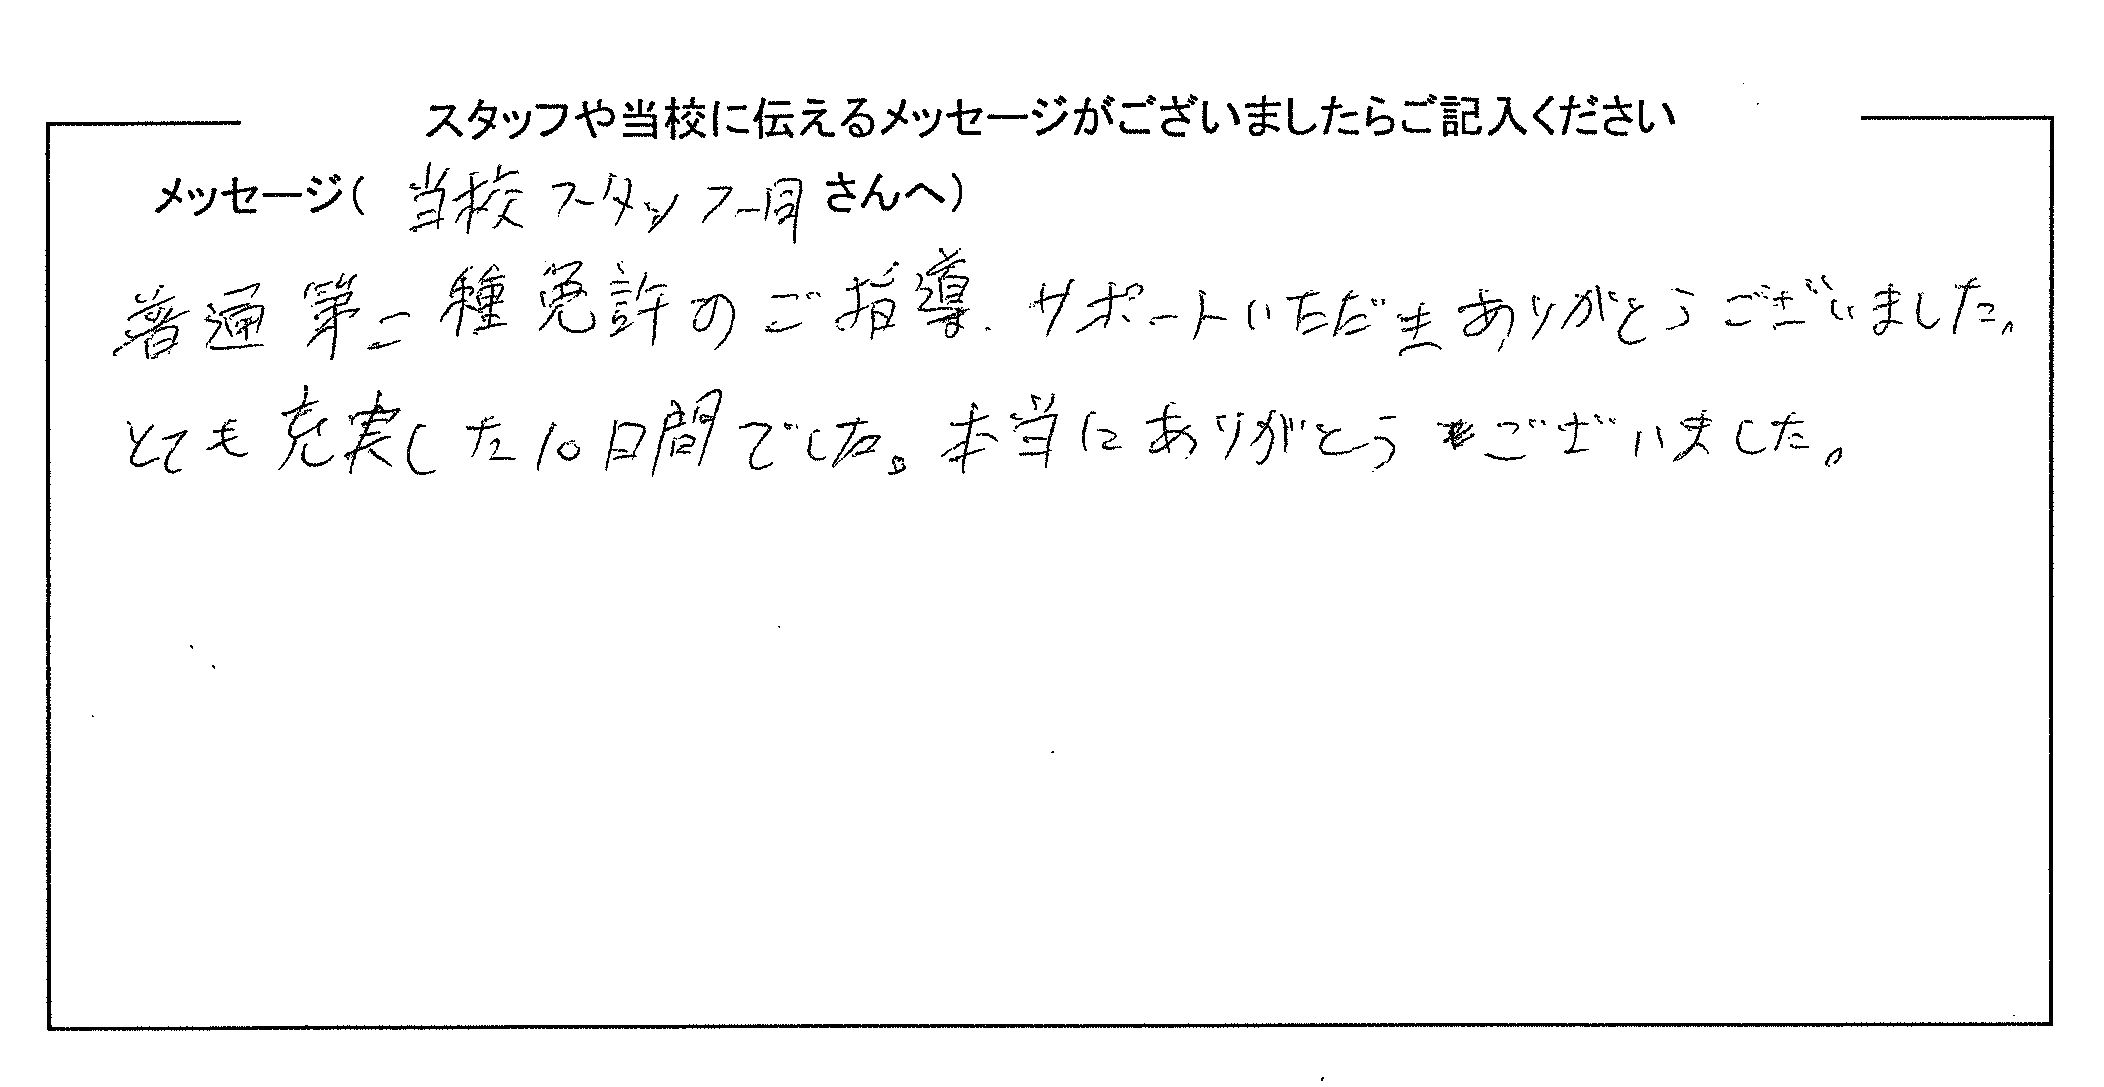 スタッフや当校に伝えるメッセージがございましたらご記入ください
メッセージ( 当校スタッフ一同 さんへ)
普通第二種免許のご指導、サポートいただきありがとうございました。
とても充実した10日間でした。本当にありがとうございました。